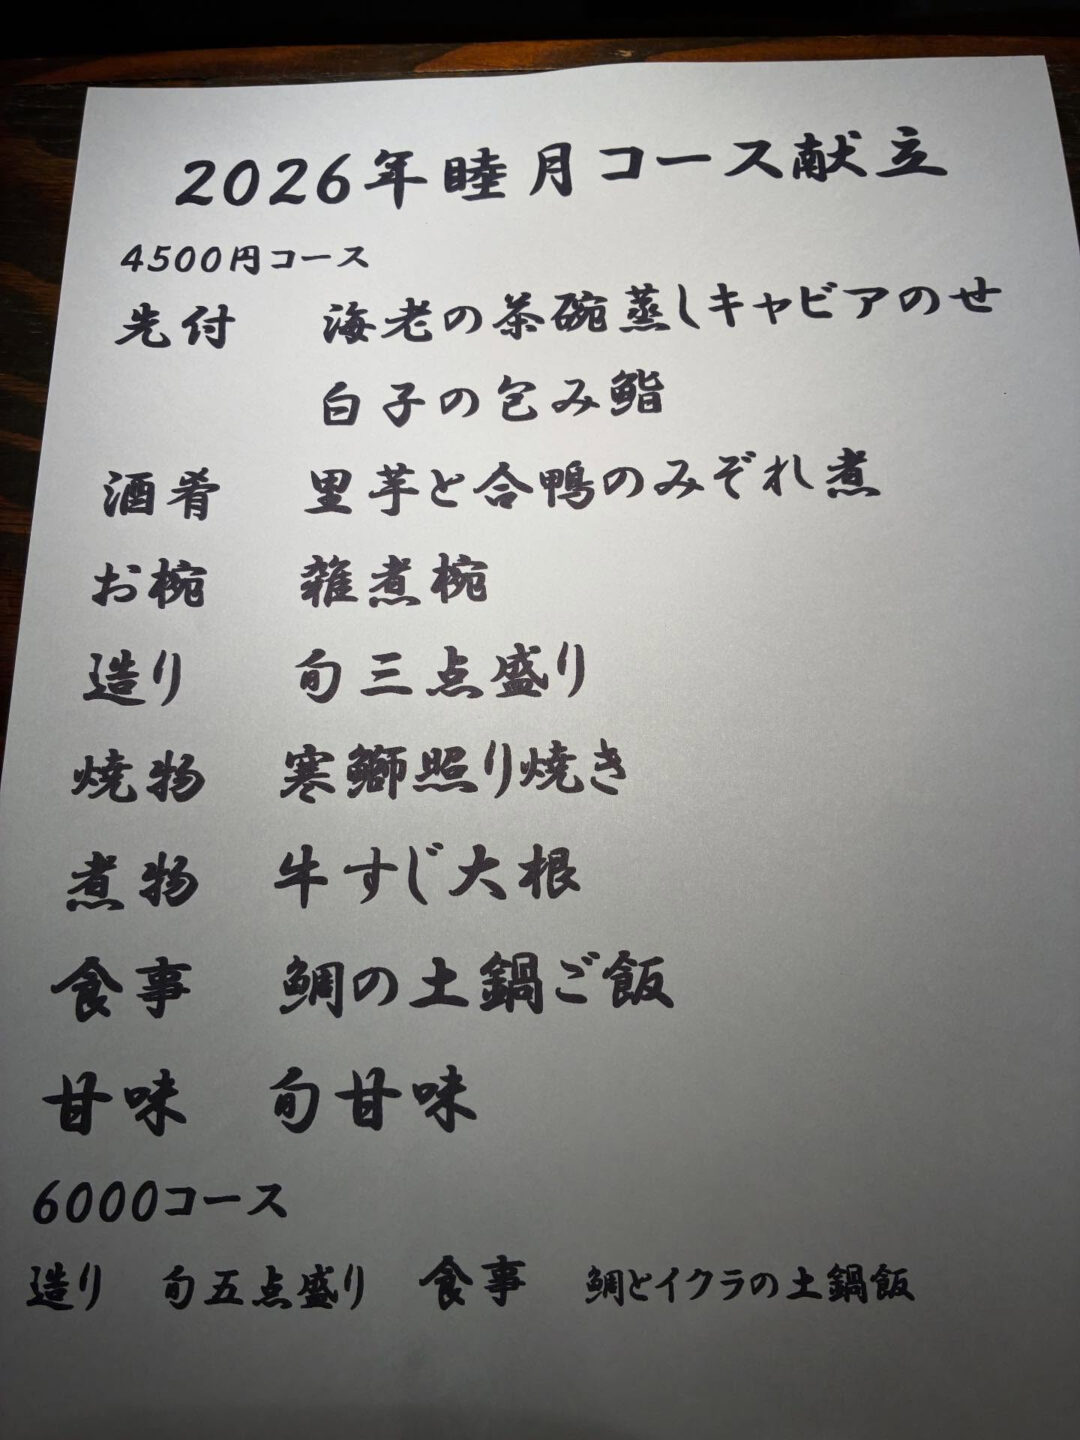 2026年睦月コース献立
4500円コース
先付 海老の茶碗蒸しキャビアのせ
白子の包み鮨
酒肴 里芋と合鴨のみぞれ煮
お椀 雑煮椀
造り 旬三点盛り
焼物 寒鰤照り焼き
煮物 牛すじ大根
食事 鯛の土鍋ご飯
甘味 旬甘味
6000コース
造り 旬五点盛り 食事 鯛とイクラの土鍋飯